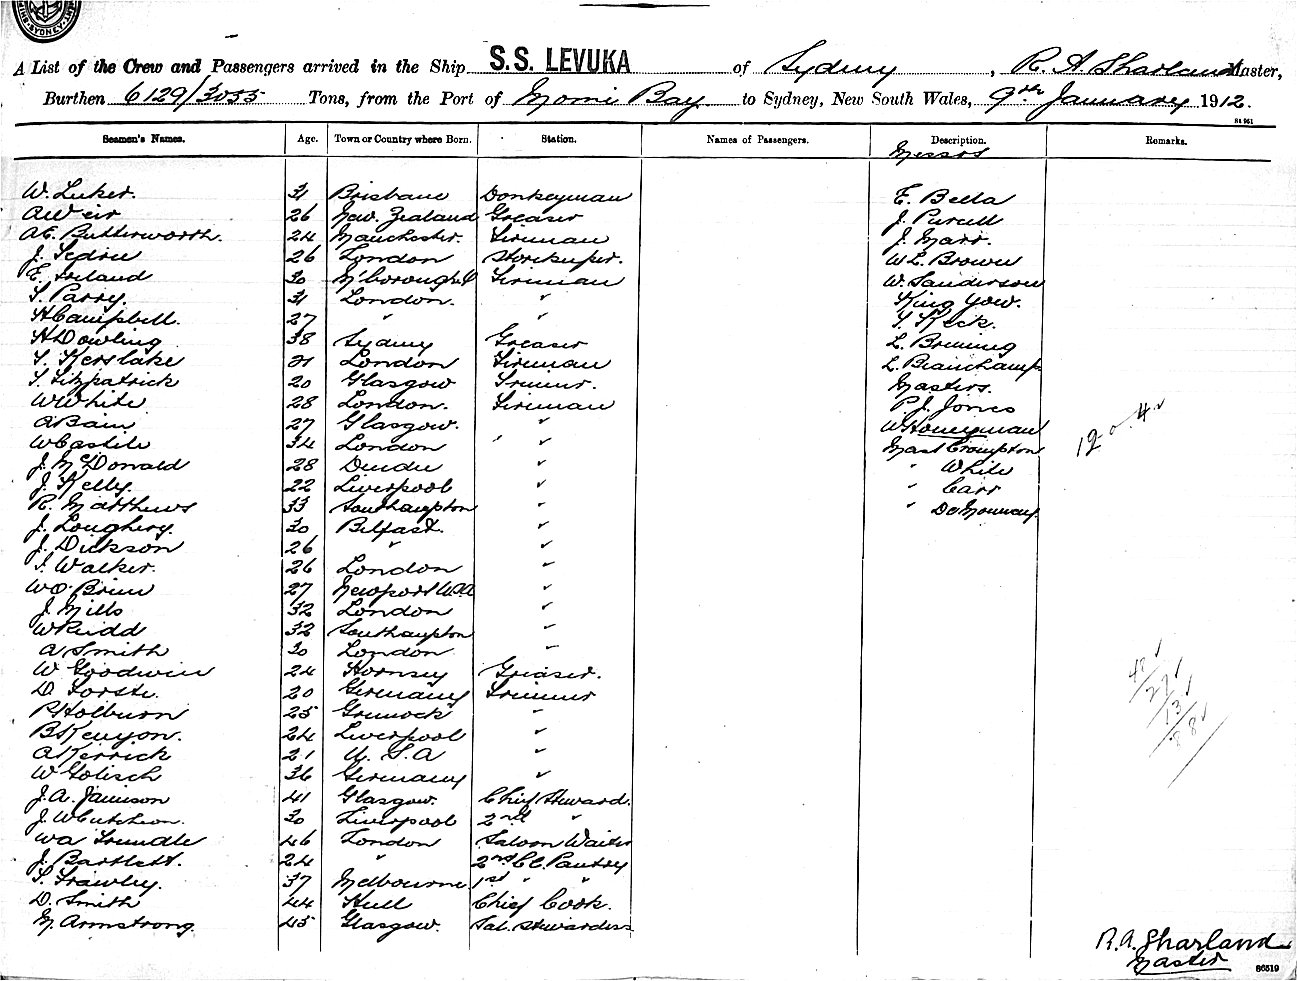 SYDNEY
A List of the Crew and Passengers arrived in the Ship S.S. LEVUKA of Sydney, R. A. Sharland Master,
Burthen 6129/3055 Tons, from the Port of Momi Bay to Sydney, New South Wales, 9th January 1912.
81 961
Seamen's Names. Age. Town or Country where Born. Station. Names of Passengers. Description. Remarks.
Messrs
W. Luker. 31 Brisbane Donkeyman E. Bella
A Weir 26 New Zealand Greaser J. Purcell
A E. Butterworth. 24 Manchester. Fireman J. Marr.
J. Fedrie 26 London Storekeeper. W L. Brown
E. Ireland 30 M'borough Fireman W. Sanderson
T. Parry. 31 London. " King Yow.
H Campbell. 27 " " T. Keck.
H Dowling 38 Sydney Greaser L. Breining
T. Kerslake 21 London Fireman L. Beauchamp
T. Fitzpatrick 20 Glasgow Trimmer. Masters.
W White 28 London. Fireman P. J. Jones
A Bain 27 Glasgow. " W Honeyman
W Castile 34 London " " Mast Crompton
J. McDonald 28 Dundee " " White
J. Kelly. 22 Liverpool " " Carr
R. Matthews 33 Southampton " " De Monnay.
J. Loughery. 30 Belfast. "
J. Dickson 26 " "
T. Walker. 26 London "
W O'Brien 27 Newport W.A "
J. Mills 32 London "
W Rudd 32 Southampton "
A Smith 30 London "
W Goodwin 24 Hornsey Greaser.
D. Forste. 20 Germany Trimmer
R Holburn 25 Greenock "
B Kenyon. 24 Liverpool "
A Kerrick 21 U. S. A "
W Golisch 36 Germany "
J. A. Jamieson 41 Glasgow. Chief Steward.
J. W Cutcheon. 30 Liverpool 2nd "
W A Trundle 46 London Saloon Waiter
J. Bartlett. 24 " 2nd Cl. Pantry
T. Frawley. 37 Melbourne 1st " "
D. Smith 44 Hull Chief Cook.
M. Armstrong. 45 Glasgow. Sal. Stewardess
12-0-4.
48
27
13
88
R. A. Sharland
Master
86519